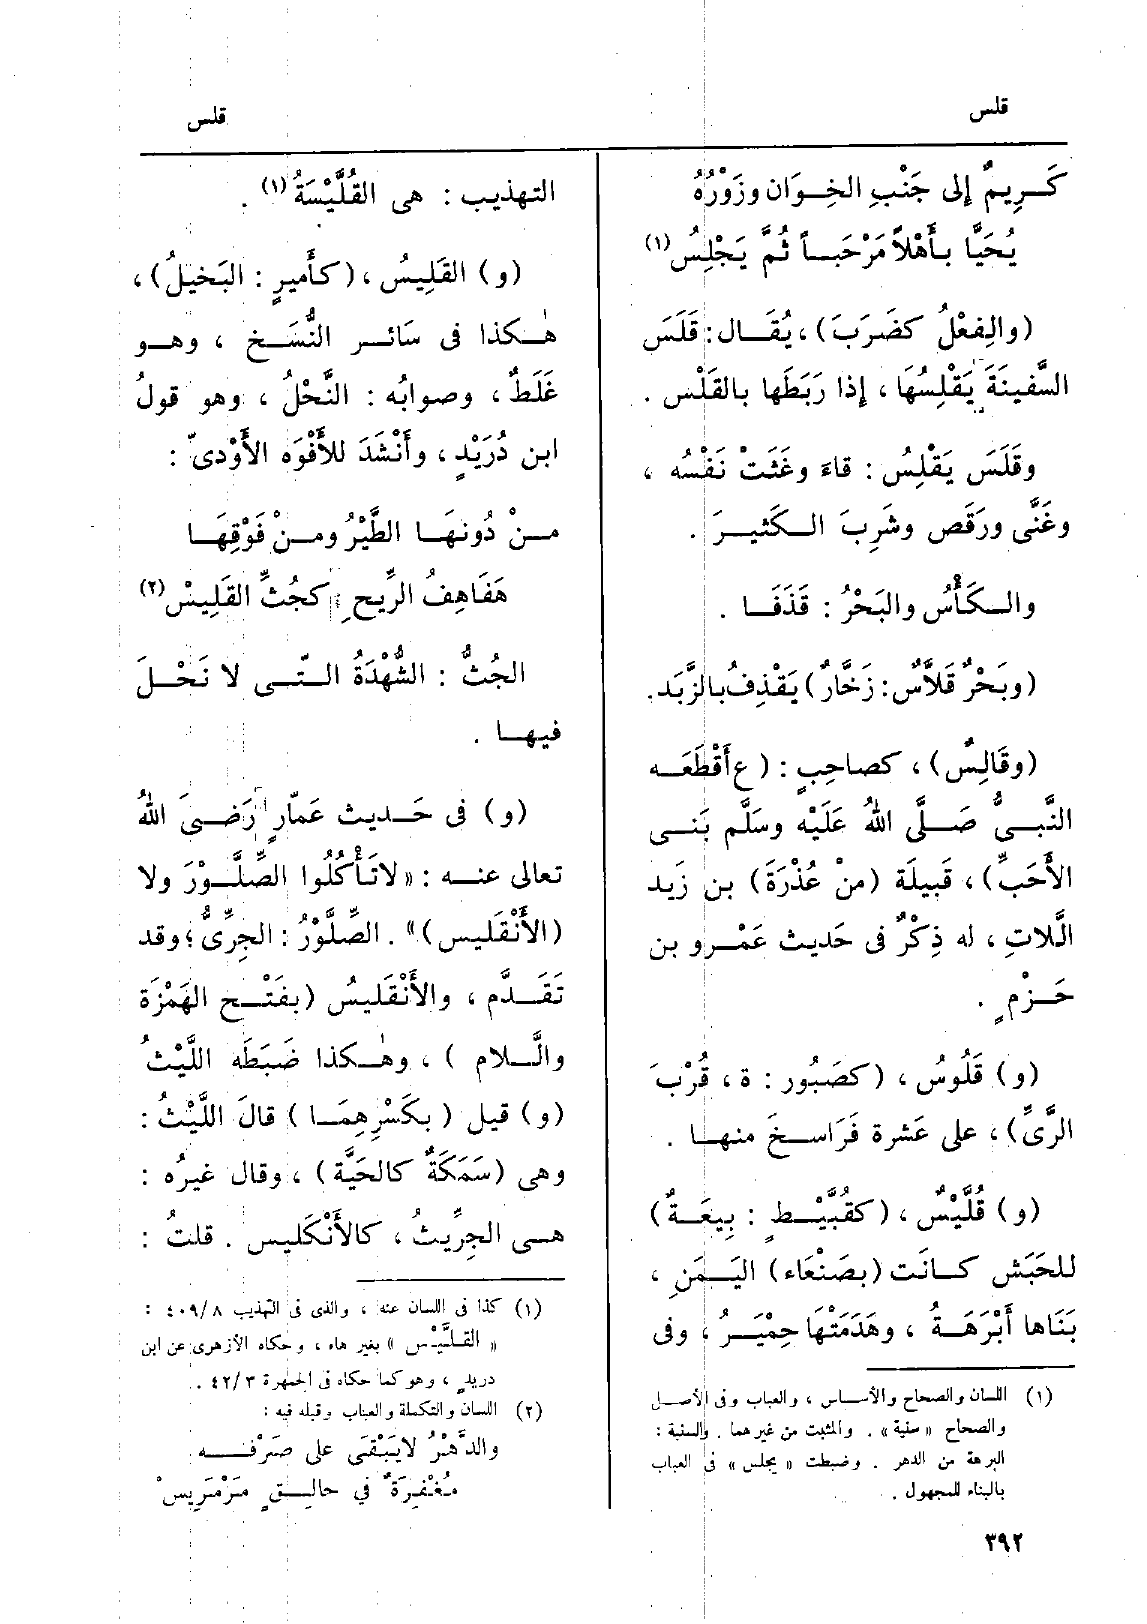 قلس
قلس
كَرِيمٌ إلى جَنْبِ الخِوَان وزَوْرُهُ
يُحَيَّا بأَهْلاً مَرْحَباً ثُمَّ يَجْلِسُ (١)
(والفِعْلُ كضَرَبَ)، يُقَال: قَلَسَ
السَّفينَةَ يَقْلِسُهَا ، إذا رَبَطَها بالقَلْس .
وقَلَسَ يَقْلِسُ : قاءَ وغَثَتْ نَفْسُه ،
وغَنَّى ورَقَص وشَرِبَ الكَثيرَ .
والكَأْسُ والبَحْرُ : قَذَفَا .
(وبَحْرٌ قَلاَّسٌ: زَخَّارٌ) يَقْذِفُ بالزَّبَد.
(وقَالِسٌ) ، كصاحِبٍ : (ع أَقْطَعَه
النَّبىُّ صَلَّى اللهُ عَلَيْه وسَلَّم بَنى
الأَحَبِّ) ، قَبِيلَة (منْ عُذْرَةَ) بن زَيد
الَّلاتِ ، له ذِكْرٌ فى حَديث عَمْرو بن
حَزْمٍ .
(و) قَلُوسُ ، (كصَبُور : ة ، قُرْبَ
الرَّىِّ) ، على عَشرة فَرَاسخَ منها .
(و) قُلَّيْسٌ ، (كقُبَّيْطٍ : بِيعَةٌ)
للحَبَش كانَت (بصَنْعَاء) اليَمَنِ ،
بَنَاها أَبْرَهَةُ ، وهَدَمَتْها حِمْيَرُ ، وفى
(١) اللسان والصحاح والأساس ، والعباب وفى الأصل
والصحاح « سنية » . والمثبت من غيرهما . والسنبة :
البرهة من الدهر . وضبطت « يجلس » فى العباب
بالبناء للمجهول .
التهذيب : هى القُلَّيْسَةُ (١) .
(و) القَلِيسُ ، (كأَميرٍ : البَخيلُ) ،
هٰكذا فى سَائر النُّسَخ ، وهو
غَلَطٌ ، وصوابُه : النَّحْلُ ، وهو قولُ
ابن دُرَيْدٍ ، وأَنْشَدَ للأَفْوَه الأَوْدىّ :
منْ دُونهَا الطَّيْرُ ومنْ فَوْقِهَا
هَفَاهِفُ الرِّيحِ كجُثِّ القَلِيسْ (٢)
الجُثُّ : الشُّهْدَةُ الَّتى لا نَحْلَ
فيها .
(و) فى حَديث عَمّارٍ رَضىَ اللهُ
تعالى عنه : « لاتَأْكُلُوا الصِّلَّوْرَ ولا
(الأَنْقَليس) » . الصِّلَّوْرُ : الجِرِّىُّ ؛ وقد
تَقَدَّم ، والأَنْقَليسُ (بفَتْح الهَمْزَة
والَّلام ) ، وهٰكذا ضَبَطَه اللَّيْثُ
(و) قيل ( بكَسْرِهِمَا ) قالَ اللَّيْثُ :
وهى (سَمَكَةٌ كالحَيَّة) ، وقال غيرُه :
هى الجِرِّيثُ ، كالأَنْكَليس . قلتُ :
(١) كذا فى اللسان عنه ، والذى فى التهذيب ٤٠٩/٨ :
« القلَّيْس » بغير هاء ، وحكاه الأزهرى عن ابن
دريد ، وهو كما حكاه فى الجمهرة ٤٢/٣ .
(٢) اللسان والتكملة والعباب وقبله فيه :
والدَّهْرُ لايَبْقَى على صَرْفه
مُغْفِرَةٌ في حالِقٍ مَرْمَرِيسْ
٣٩٢